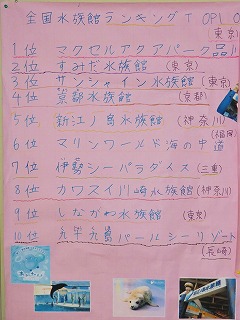 全国水族館ランキングTOP10
1位 マクセルアクアパーク品川
(東京)
2位 すみだ水族館 (東京)
3位 サンシャイン水族館 (東京)
4位 京都水族館 (京都)
5位 新江ノ島水族館 (神奈川)
6位 マリンワールド海の中道
(福岡)
7位 伊勢シーパラダイス (三重)
8位 カワスイ川崎水族館 (神奈川)
9位 しながわ水族館 (東京)
10位 九十九島パールシーリゾート
(長崎)